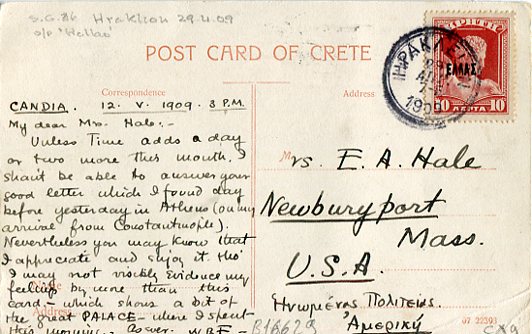 S.G. 86 Hraklion 29.4.09
o/p 'Hellas'
POST CARD OF CRETE
Correspondence
Address
ΗΡΑΚΛΕΙΟΝ
1909
ΕΛΛΑΣ
10 ΛΕΠΤΑ 10
CANDIA. 12. V. 1909. 3 P.M.
My dear Mrs. Hale:-
Unless Time adds a day
or two more this month, I
shan't be able to answer your
good letter which I found day
before yesterday in Athens (on my
arrival from Constantinople).
Nevertheless you may know that
I appreciate and enjoy it tho'
I may not visibly evidence my
feeling by more than this
card - which shows a bit of
the great PALACE - where I spent
this morning. As ever. W.B.F.
Mrs. E. A. Hale
Newburyport
Mass.
U.S.A.
Ηνωμένας Πολιτείας
Ἀμερική
Name
Address
07 22393
B16629